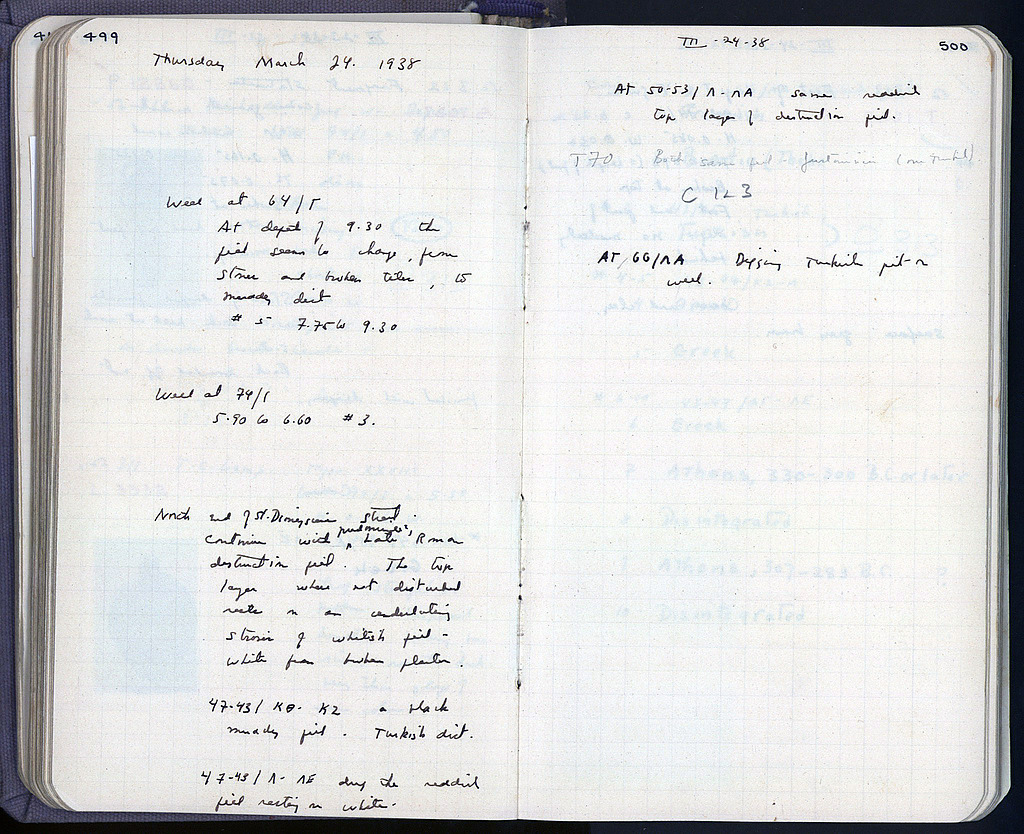 499
Thursday March 24. 1938
Well at 64/Γ
At depth of 9.30 the
fill seems to change, from
stones and broken tiles, to
muddy dirt
# 5 7.75 to 9.30
Well at 74/Γ
5.90 to 6.60 #3.
North end of St. Dionysius street.
Continue with predominantly Late Roman
destruction fill. The top
layer where not disturbed
rests on an undulating
strosis of whitish fill -
white from broken plaster.
47-43/ ΚΘ- ΚΖ a black
muddy fill. Turkish dist.
47-43/ Λ- ΛΕ dug the reddish
fill resting on white.
III -24-38
500
At 50-53/Λ-ΛΑ same reddish
top layer of destruction fill.
T70 Both same fill - Justinian (one Turkish).
C 123
AT, 66/ΛΑ Digging Turkish pit or
well.